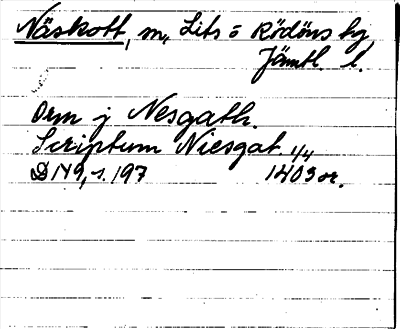 Näskott, sn, Lits o Rödöns hg
Jämtl. l.
Orm j Nesgath.
Scriptum Niesgat 1/4
D 149, s. 197 1403 or.